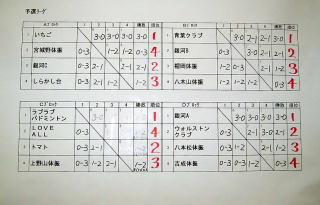 予選リーグ
Aブロック 1 2 3 4 勝敗 順位
1 いちご 3-0 3-0 3-0 3-0 1
2 宮城野体振 0-3 1-2 1-2 0-3 4
3 銀河C 0-3 2-1 2-1 2
4 しらかし台 0-3 2-1 1-2 3
Bブロック 1 2 3 4 勝敗 順位
1 青葉クラブ 3-0 3-0 1
2 銀河B 0-3 2-1 2
3 福岡体振 0-3 1-2 2-1 3
4 八木山体振 0-3 4
Cブロック 勝敗 順位
1 ラブラブバドミントン 1
2 LOVE ALL 0-3 4
3 トマト 0-3 2-1 2
4 上野山体振 0-3 1-2 3
Dブロック 勝敗 順位
1 銀河A 3-0 3-0 3-0 3-0 1
2 ウォルストンクラブ 0-3 2-1 3-0 2-1 2
3 八本松体振 0-3 1-2 2-1 1-2 3
4 吉成体振 0-3 0-3 1-2 0-3 4